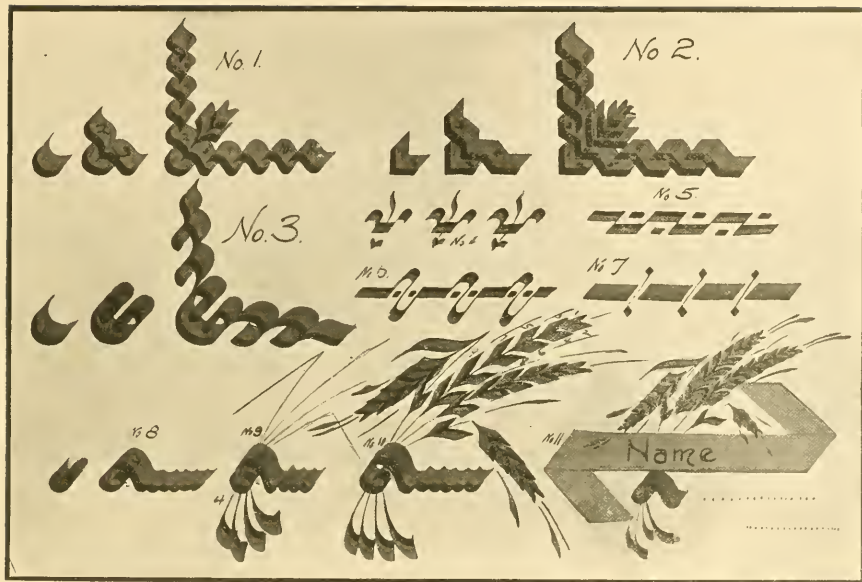 No. 1.
No 2.
No. 3.
No 5.
No 7
No 8
No 9
No 10
No 11
Name
4